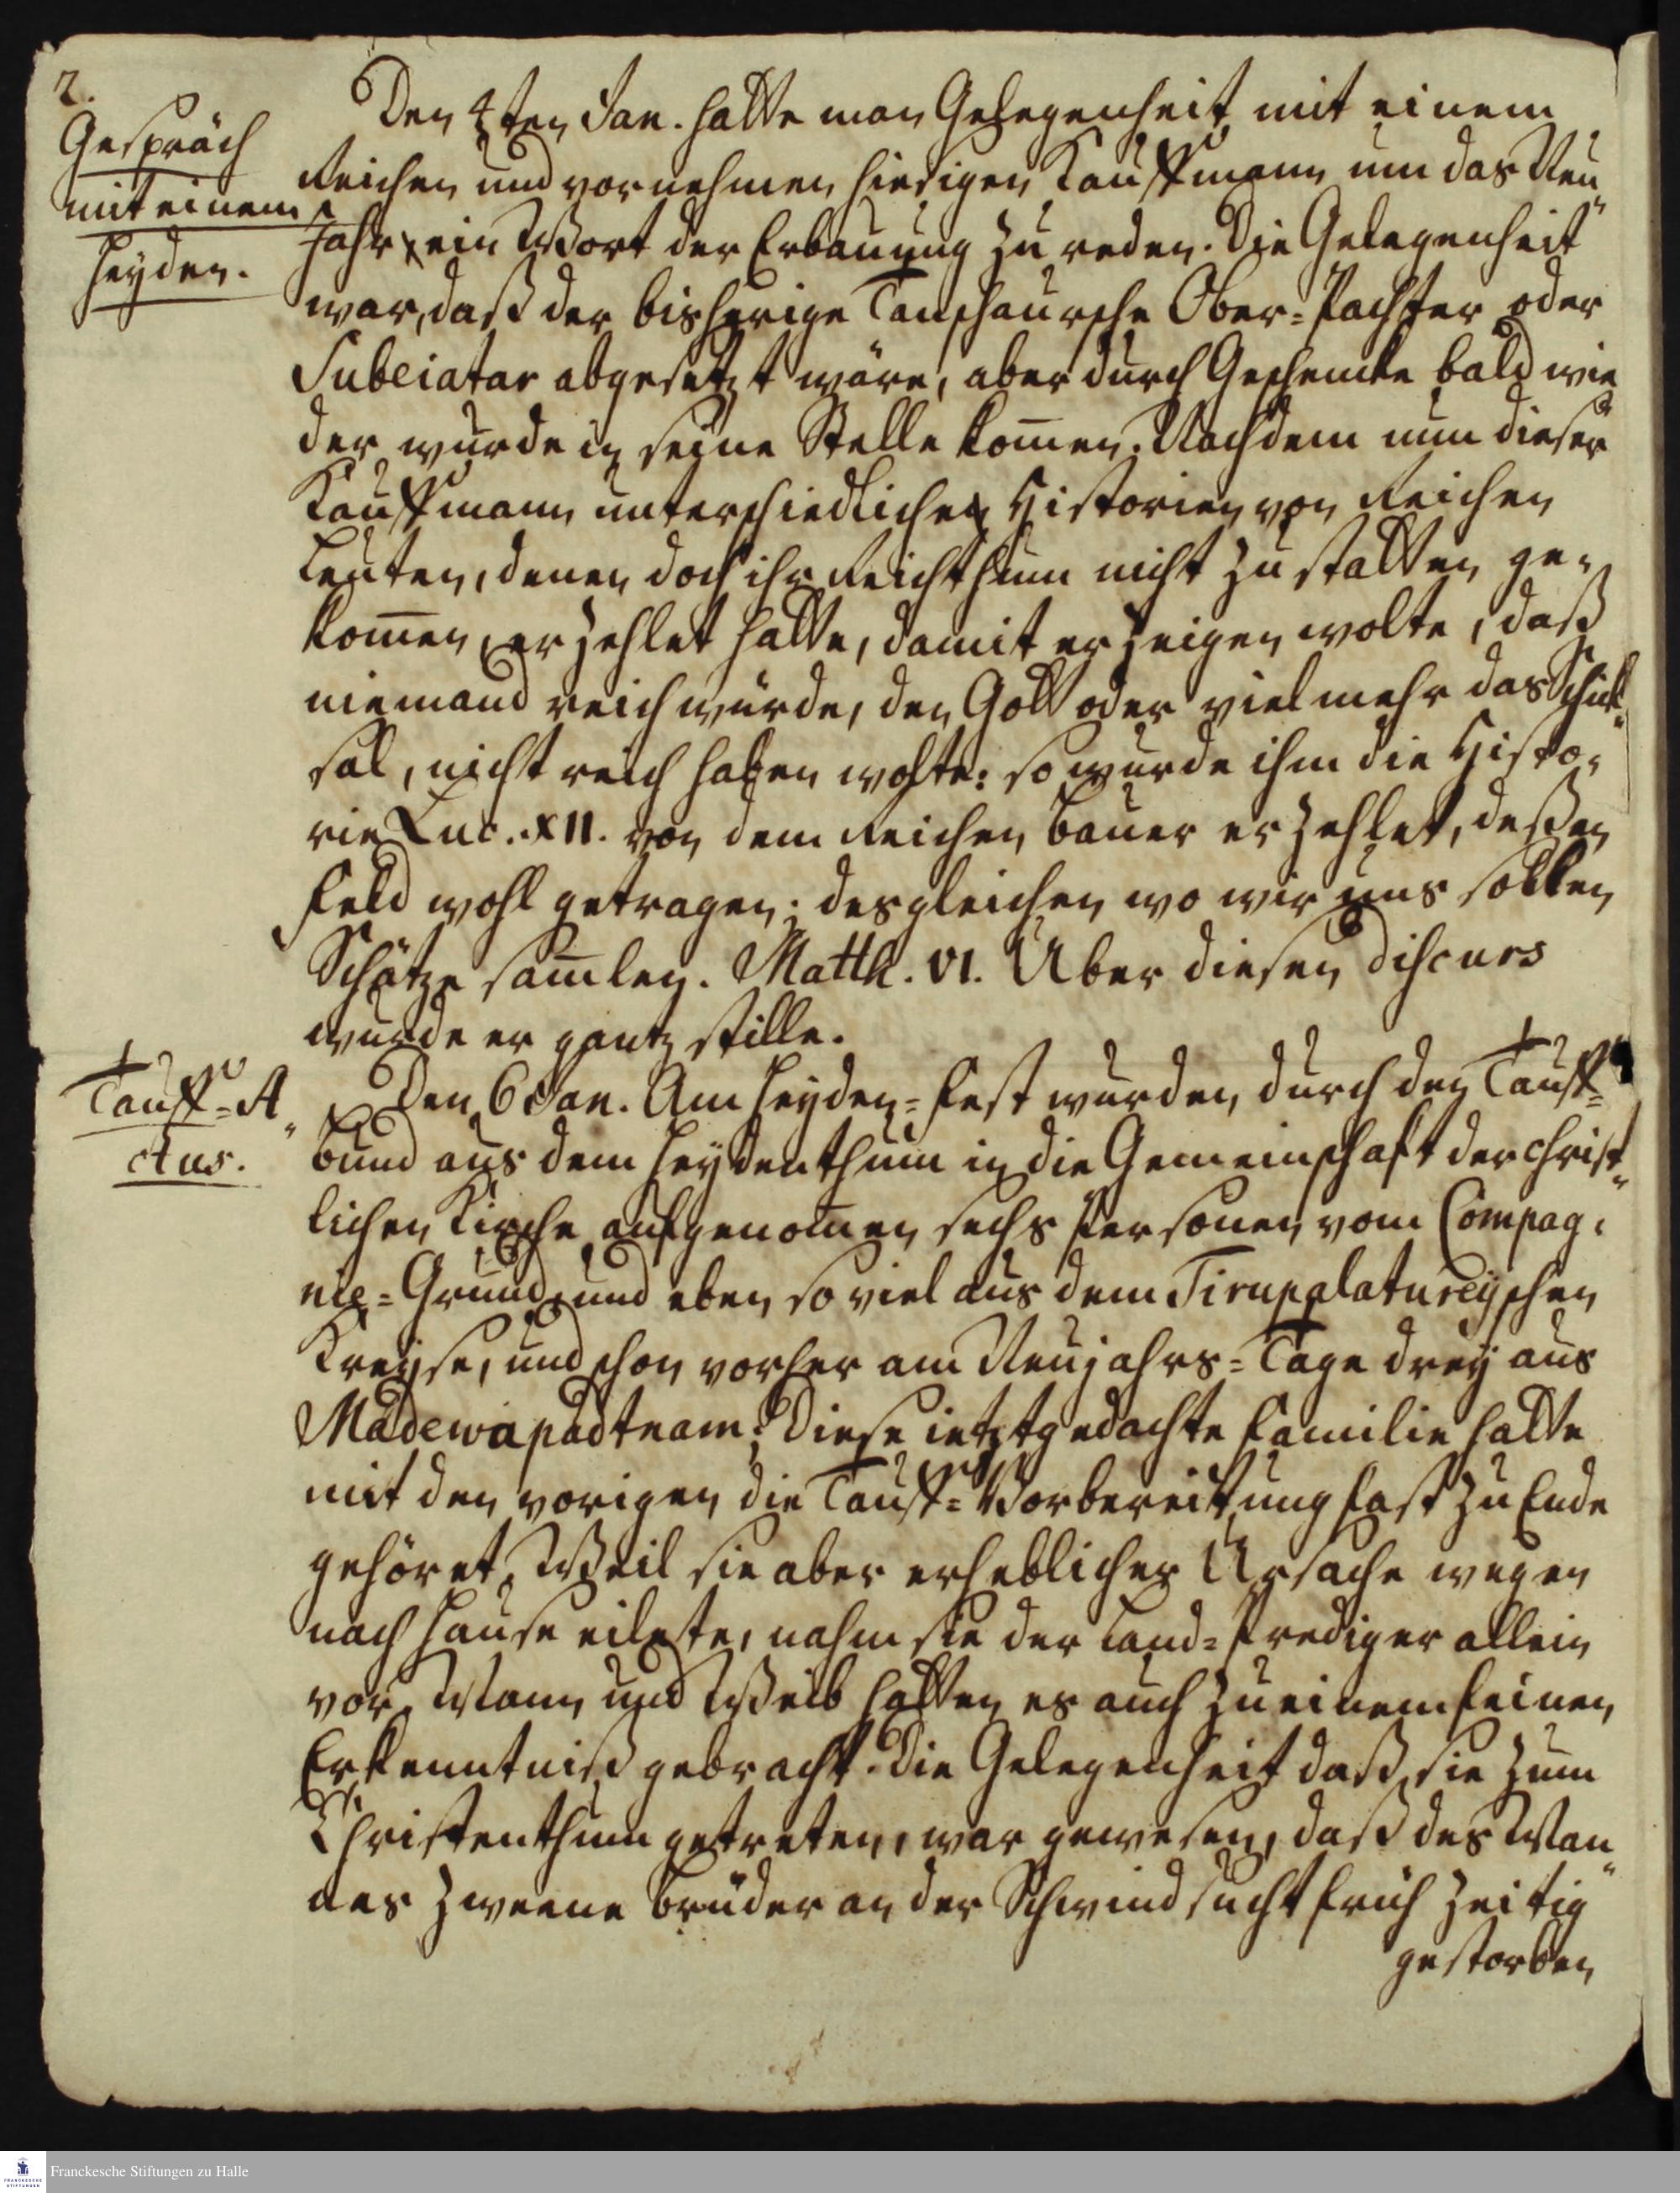 2.
Gespräch
mit einem
Heyden.
Den 4ten Jan. hatte man Gelegenheit mit einem
Reichen und vornehmen hiesigen Kauffmann um das Neu„
Jahr ein Wort der Erbauung zu reden. Die Gelegenheit
war, daß der bisherige Tanschaursche Ober-Pachter oder
Subeiatar abgesetzt wäre, aber durch Geschencke bald wie
der wurde in seine Stelle kom̄en. Nachdem nun dieser
Kauffmann unterschiedliche Historien von Reichen
Leuten, denen doch ihr Reichthum nicht zu statten ge„
kom̄en, erzehlet hatte, damit er zeigen wolte, daß
niemand reich würde, den Gott oder vielmehr das Schick„
sal, nicht reich haben wolte: so wurde ihm die Histo„
rie Luc. XII. von dem Reichen Bauer erzehlet, deßen
Feld wohl getragen; desgleichen wo wir uns solten
Schätze sam̄len. Matth. VI. Uber diesen discurs
wurde er gantz stille.
Tauff-A„
ctus.
Den 6 Jan. Am Heyden-Fest wurden durch den Tauff-
bund aus dem Heydenthum in die Gemeinschaft der Christ„
lichen Kirche aufgenom̄en sechs Personen vom Compag„
nie-Grund, und eben so viel aus dem Tirupalatureyschen
Kreyse, und schon vorher am Neujahrs-Tage drey aus
Mâdewapadtnam; Diese ietztgedachte Familie hatte
mit den vorigen die Tauff-Vorbereitung fast zu Ende
gehöret, Weil sie aber erheblicher Ursache wegen
nach Hause eilete, nahm sie der Land-Prediger allein
vor, Mann und Weib hatten es auch zu einem feinen
Erkenntniß gebracht. Die Gelegenheit daß sie zum
Christenthum getreten, war gewesen, daß des Man„
nes zweene Brüder an der Schwindsucht früh zeitig
gestorben
Franckesche Stiftungen zu Halle
FRANCKESCHE
STIFTUNGEN